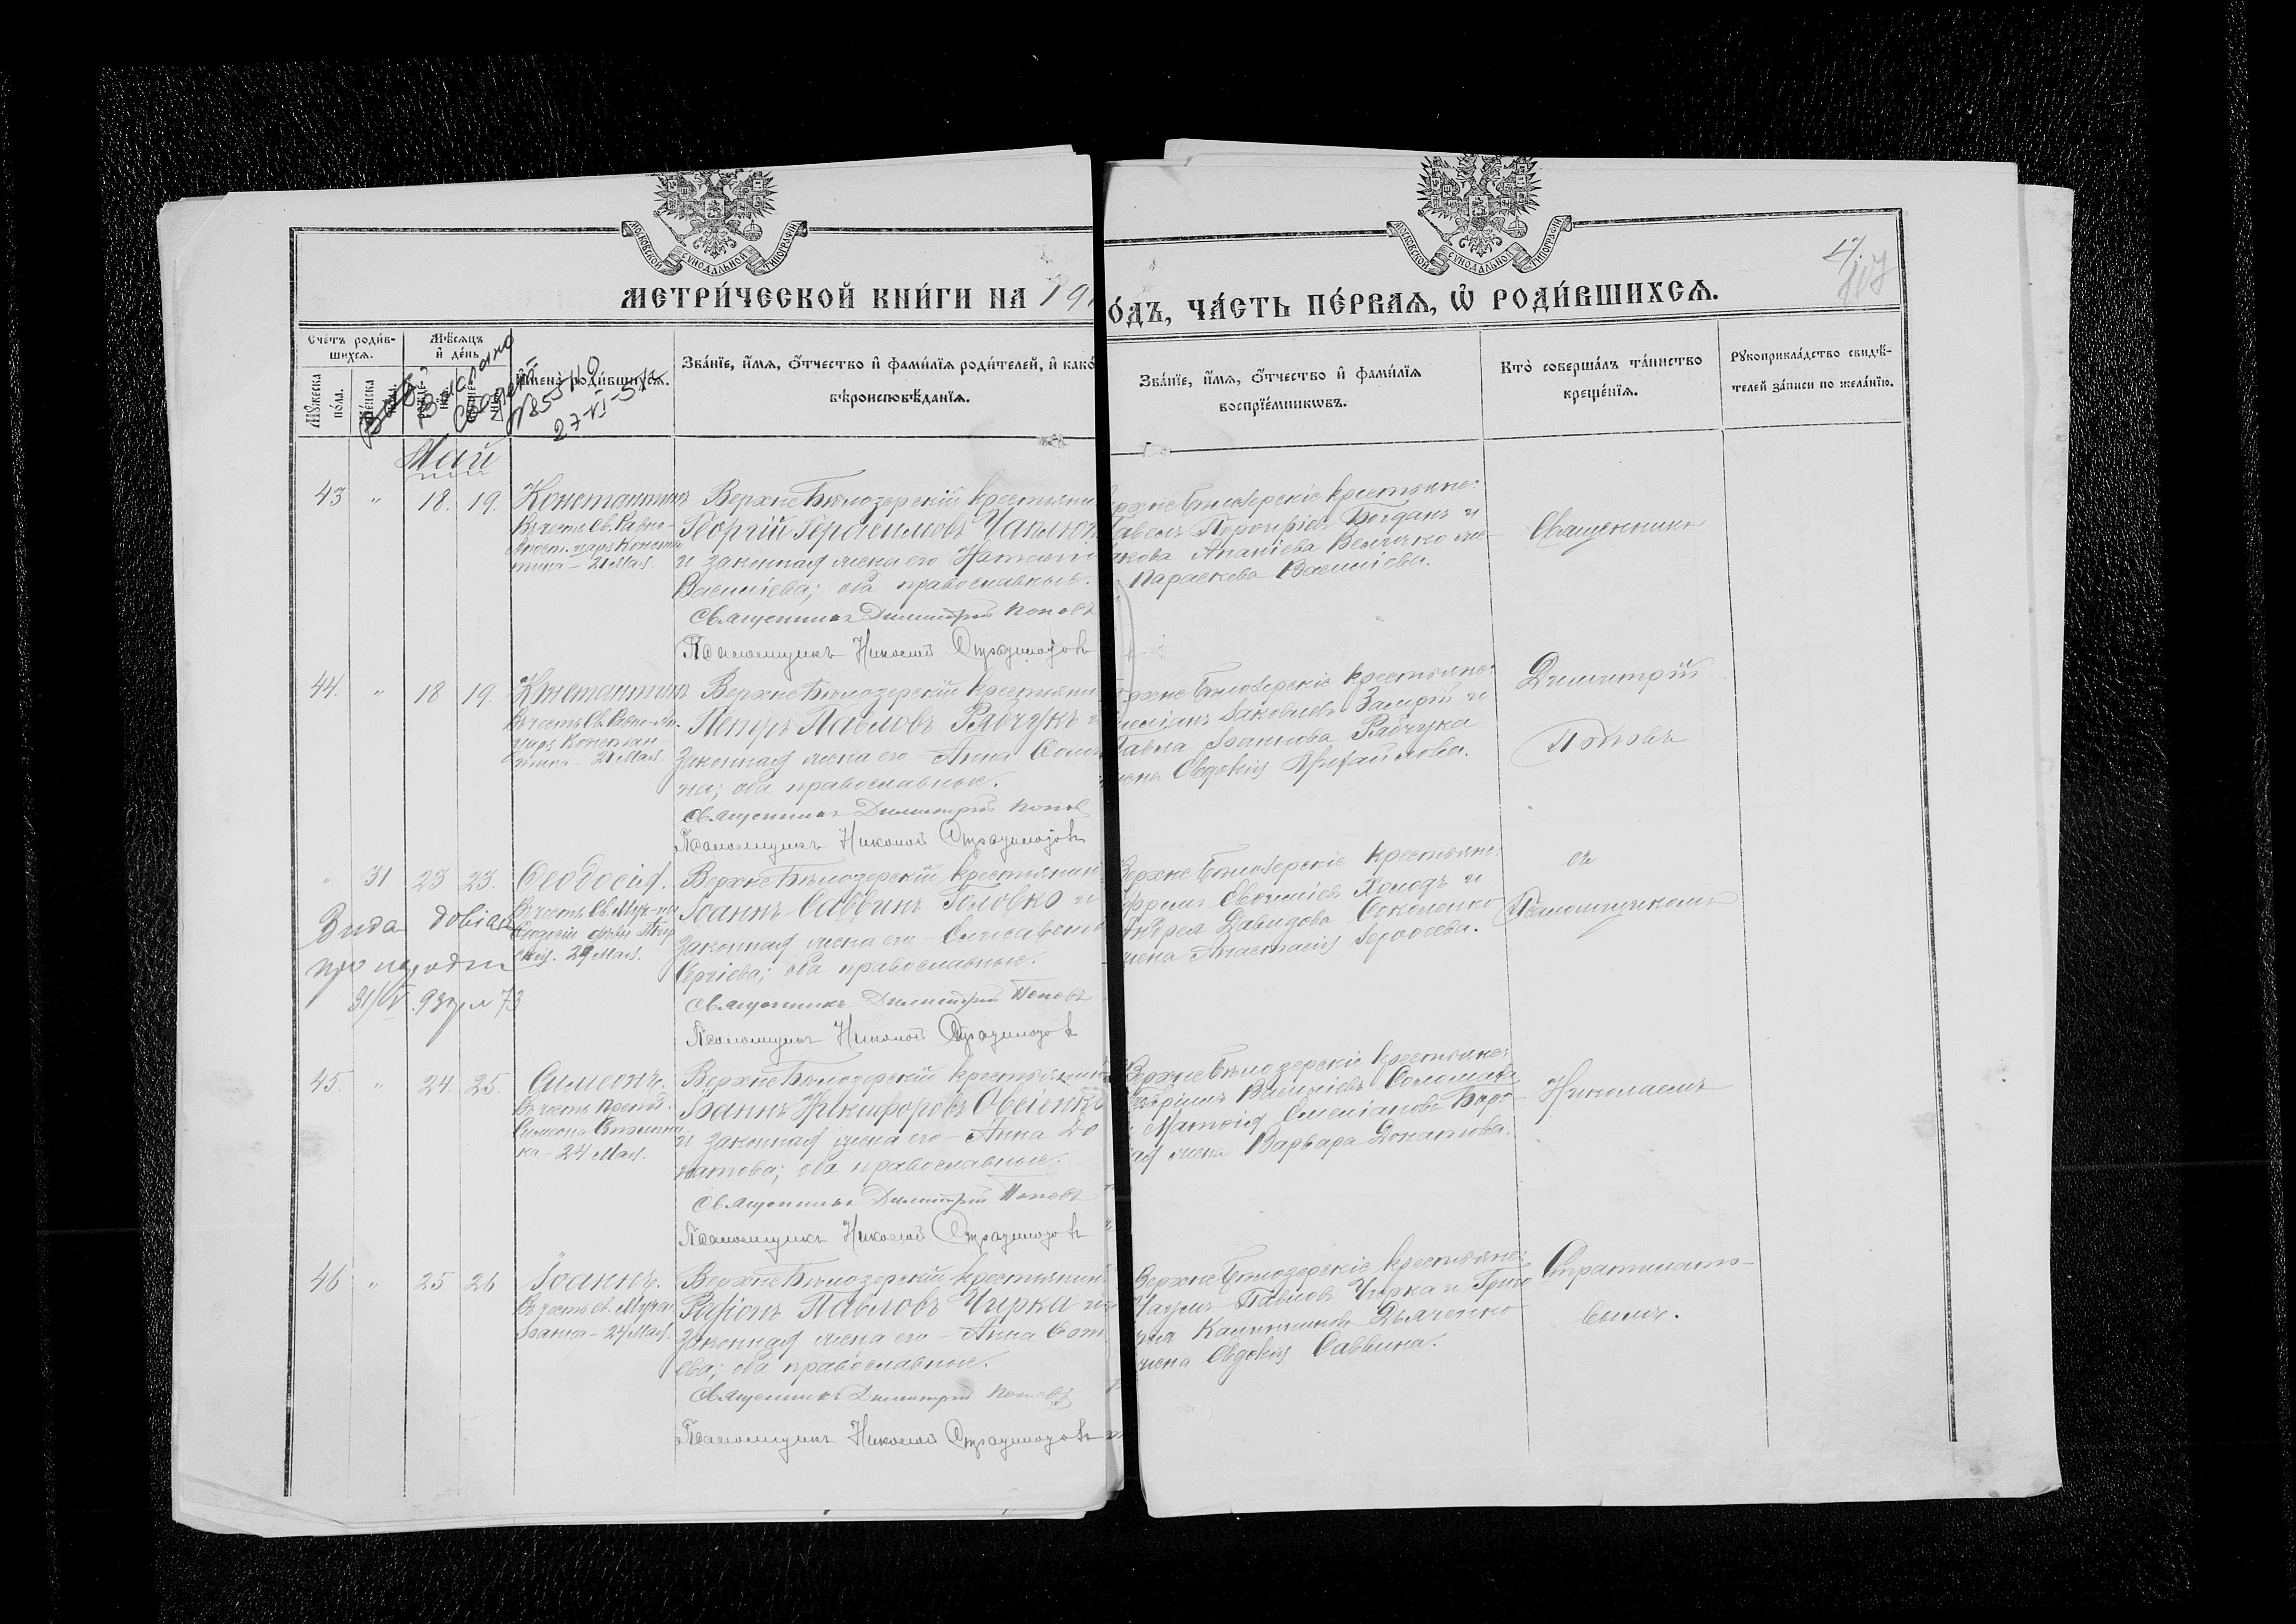 МОСКОВСКОЙ СѴНОДАЛЬНОЙ ТИПОГРАФІИ
МОСКОВСКОЙ СѴНОДАЛЬНОЙ ТИПОГРАФІИ
МЕТРИ́ЧЕСКОЙ КНИ́ГИ НА 191
О́ДЪ, ЧА́СТЬ ПЕ́РВАѦ, Ѡ҆ РОДИ́ВШИХСѦ.
Сче́тъ роди́в-
шихсѧ.
Мѣ́сѧцъ
и҆ де́нь
Мꙋжеска по́ла.
Же́нска
И҆мена̀ роди́вшихсѧ.
Зва́нїе, и҆́мѧ, ѻ҆́тчество и҆ фами́лїѧ роди́телей, и҆ како́
вѣроисповѣ́данїѧ.
Зва́нїе, и҆́мѧ, ѻ҆́тчество и҆ фами́лїѧ
воспрїе́мникѡвъ.
Кто̀ соверша́лъ та́инство
креще́нїѧ.
Рꙋкоприкла́дство свидѣ́-
телей за́писи по жела́нїю.
27-VI-51
Май
43 " 18. 19. Константинъ
Въ честь Св. Равно-
Апост. царя Конста
тина - 21 Мая.
Верхне Бѣлозерскій крестьяни
Георгій Герасимовъ Чаплюк
и законная жена его Натали
Василіева; оба православные.
Священникъ Димитрій Поповъ
Псаломщикъ Николай Стратилатовъ
ерхне Бѣлозерскіе крестьяне:
Павелъ Порфиріевъ Богданъ и
акова Ананіева Величко же-
Параскева Василіева.
Священникъ
44. " 18 19. Константинъ
Въ честь Св. Равно-Ап.
царя Констан-
тина - 21 Мая.
Верхне Бѣлозерскій крестьяни
Петръ Павловъ Рябчукъ и
законная жена его - Анна
на; оба православные.
Священникъ Димитрій Попов
Псаломщикъ Николай Стратилатовъ
ерхне Бѣлозерскіе крестьяне:
Іаковлевъ и
Павла Іоаннова Рябчука
жена Евдокія Михайлова.
Димитрій
Поповъ
" 31 23 23. Ѳеодосія.
Въ честь Св. Муч-цы
Ѳеодосіи дѣвы Тир
скія. 29 Мая.
Верхне Бѣлозерскій крестьянин
Іоаннъ Саввинъ Головко и
законная жена его - Елисавета
Сергіева; оба православные.
Священникъ Димитрій Поповъ
Псаломщикъ Николай Стратилатовъ
Верхне Бѣлозерскіе крестьяне:
Ефремъ Евѳиміевъ Холодъ и
Андрея Давидова Соколенко
жена Анастасія
съ
Псаломщикомъ
45. " 24. 25. Симеонъ.
Въ честь препод.
Симеона Столпни
ка - 24 Мая.
Верхне Бѣлозерскій крестьянин
Іоаннъ Никифоровъ Овсіенко
и законная жена его - Анна До
натова; оба православные.
Священникъ Димитрій Поповъ
Псаломщикъ Николай Стратилатовъ
Верхне Бѣлозерскіе крестьяне:
Гавріилъ Василіевъ Соломаха
Матѳія Емеліанова
жена Варвара Донатова.
Николаемъ
46 " 25 26 Іоаннъ.
Въ честь св. Мучен.
Іоанна - 24 Мая.
Верхне Бѣлозерскій крестьянинъ
Родіонъ Павловъ Чирка и
законная жена его - Анна
ева; оба православные.
Священникъ Димитрій Поповъ
Псаломщикъ Николай Стратилатовъ
Верхне Бѣлозерскіе крестьяне:
Наумъ Павловъ Чирка и Григо
рія Калинникова Дьяченко
жена Евдокія Саввина.
Стратилато-
вымъ.